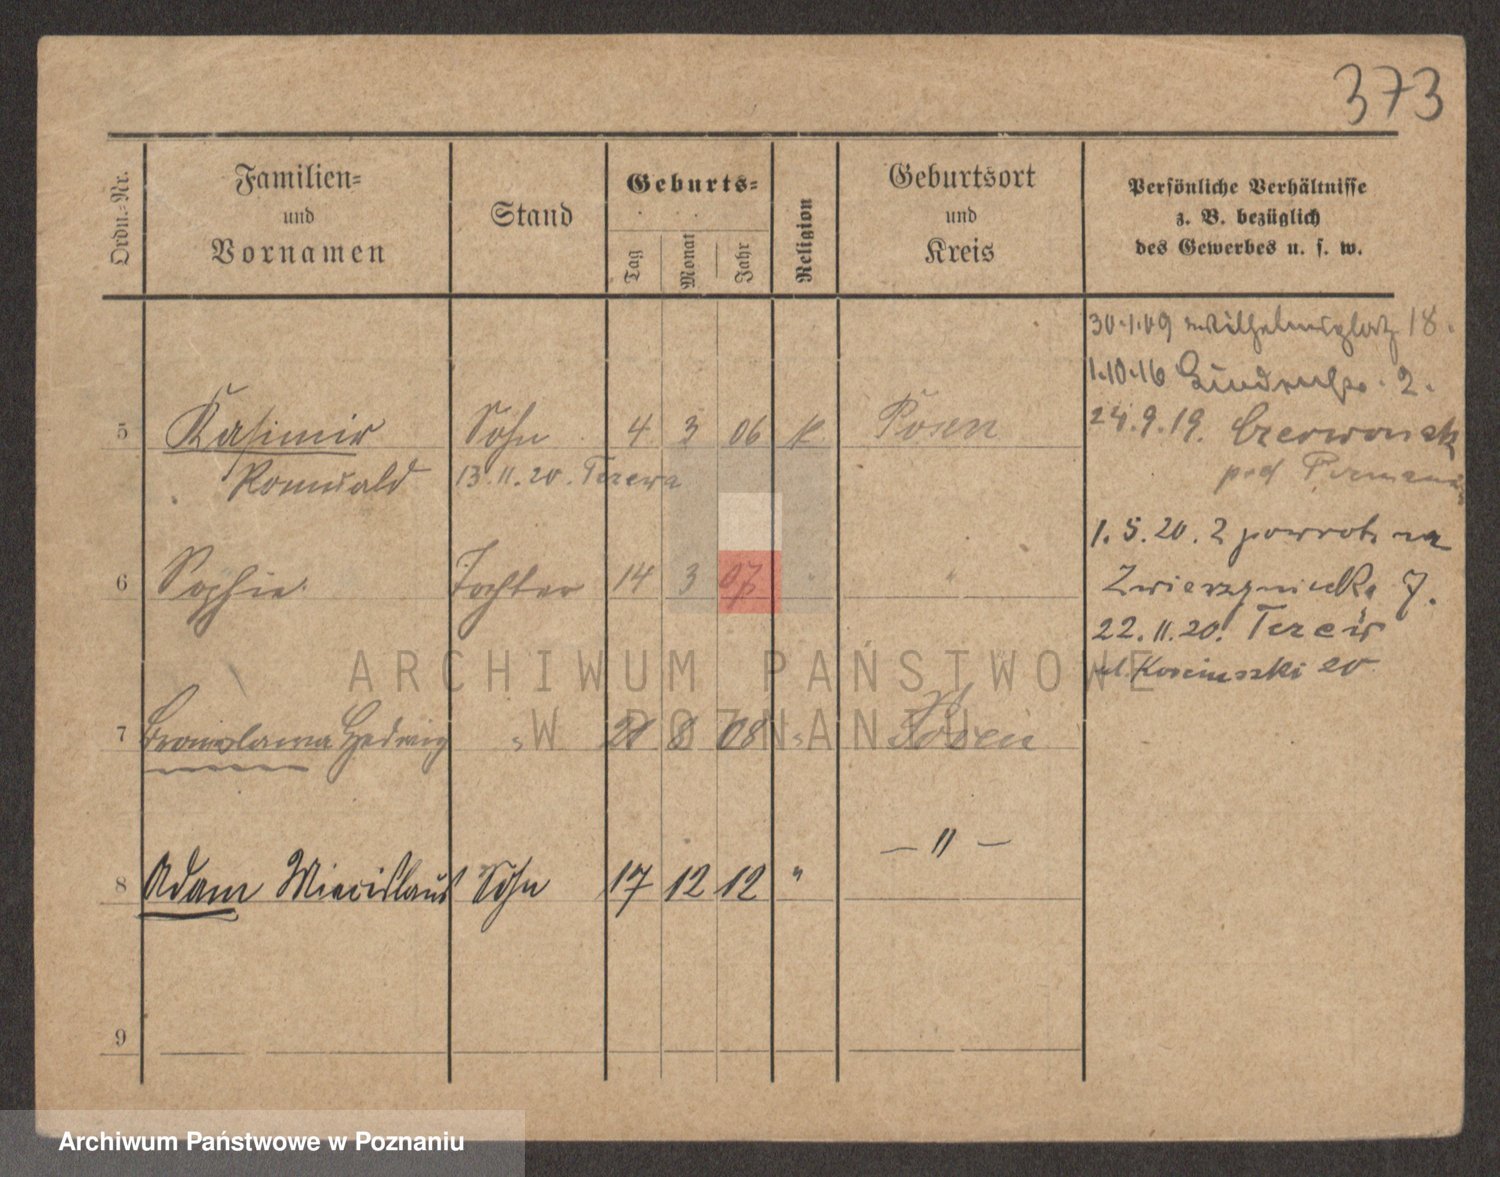 373
Ordn.-Nr.
Familien-
und
Vornamen
Stand
Geburts-
Tag
Monat
Jahr
Religion
Geburtsort
und
Kreis
Persönliche Verhältnisse
z. B. bezüglich
des Gewerbes u. s. w.
30.1.09 Wilhelmsplatz 18.
1.10.16 2.
5 Kasimir Sohn 4 3 06 k Posen
24.9.19. Czerwonak
Romuald 13.11.20. Tczewa
pod
1.5.20. Z powrotem na
6 Sophie Tochter 14 3 07 " "
Zwierzyniecka 7.
22.11.20. Tczew
ul. Kosciuszki 20
ARCHIWUM PAŃSTWOWE
W POZNANIU
7 Bronislawa Hedwig " 28 8 08 " Posen
8 Adam Miecislaus Sohn 17 12 12 " — " —
9
Archiwum Państwowe w Poznaniu